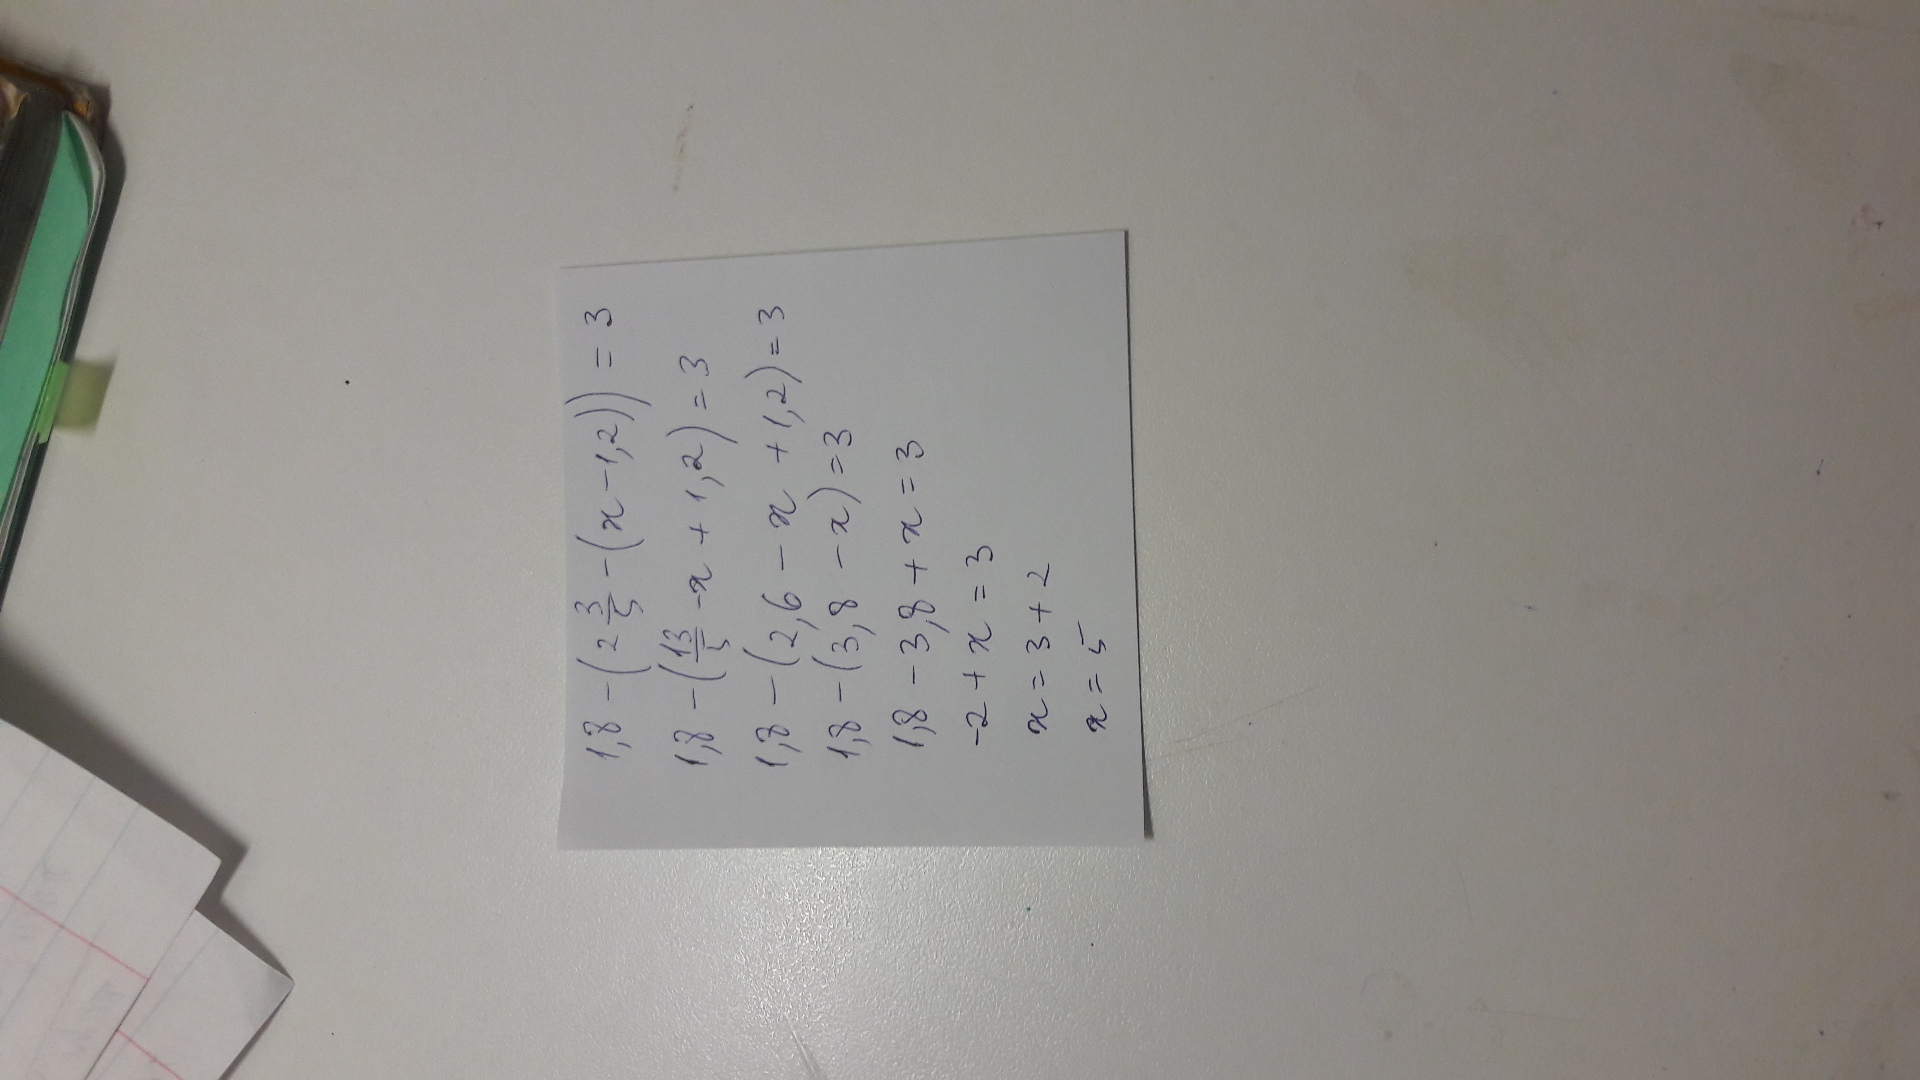 1,8 - (2 3/5 - (x - 1,2)) = 3
1,8 - (13/5 - x + 1,2) = 3
1,8 - (2,6 - x + 1,2) = 3
1,8 - (3,8 - x) = 3
1,8 - 3,8 + x = 3
-2 + x = 3
x = 3 + 2
x = 5